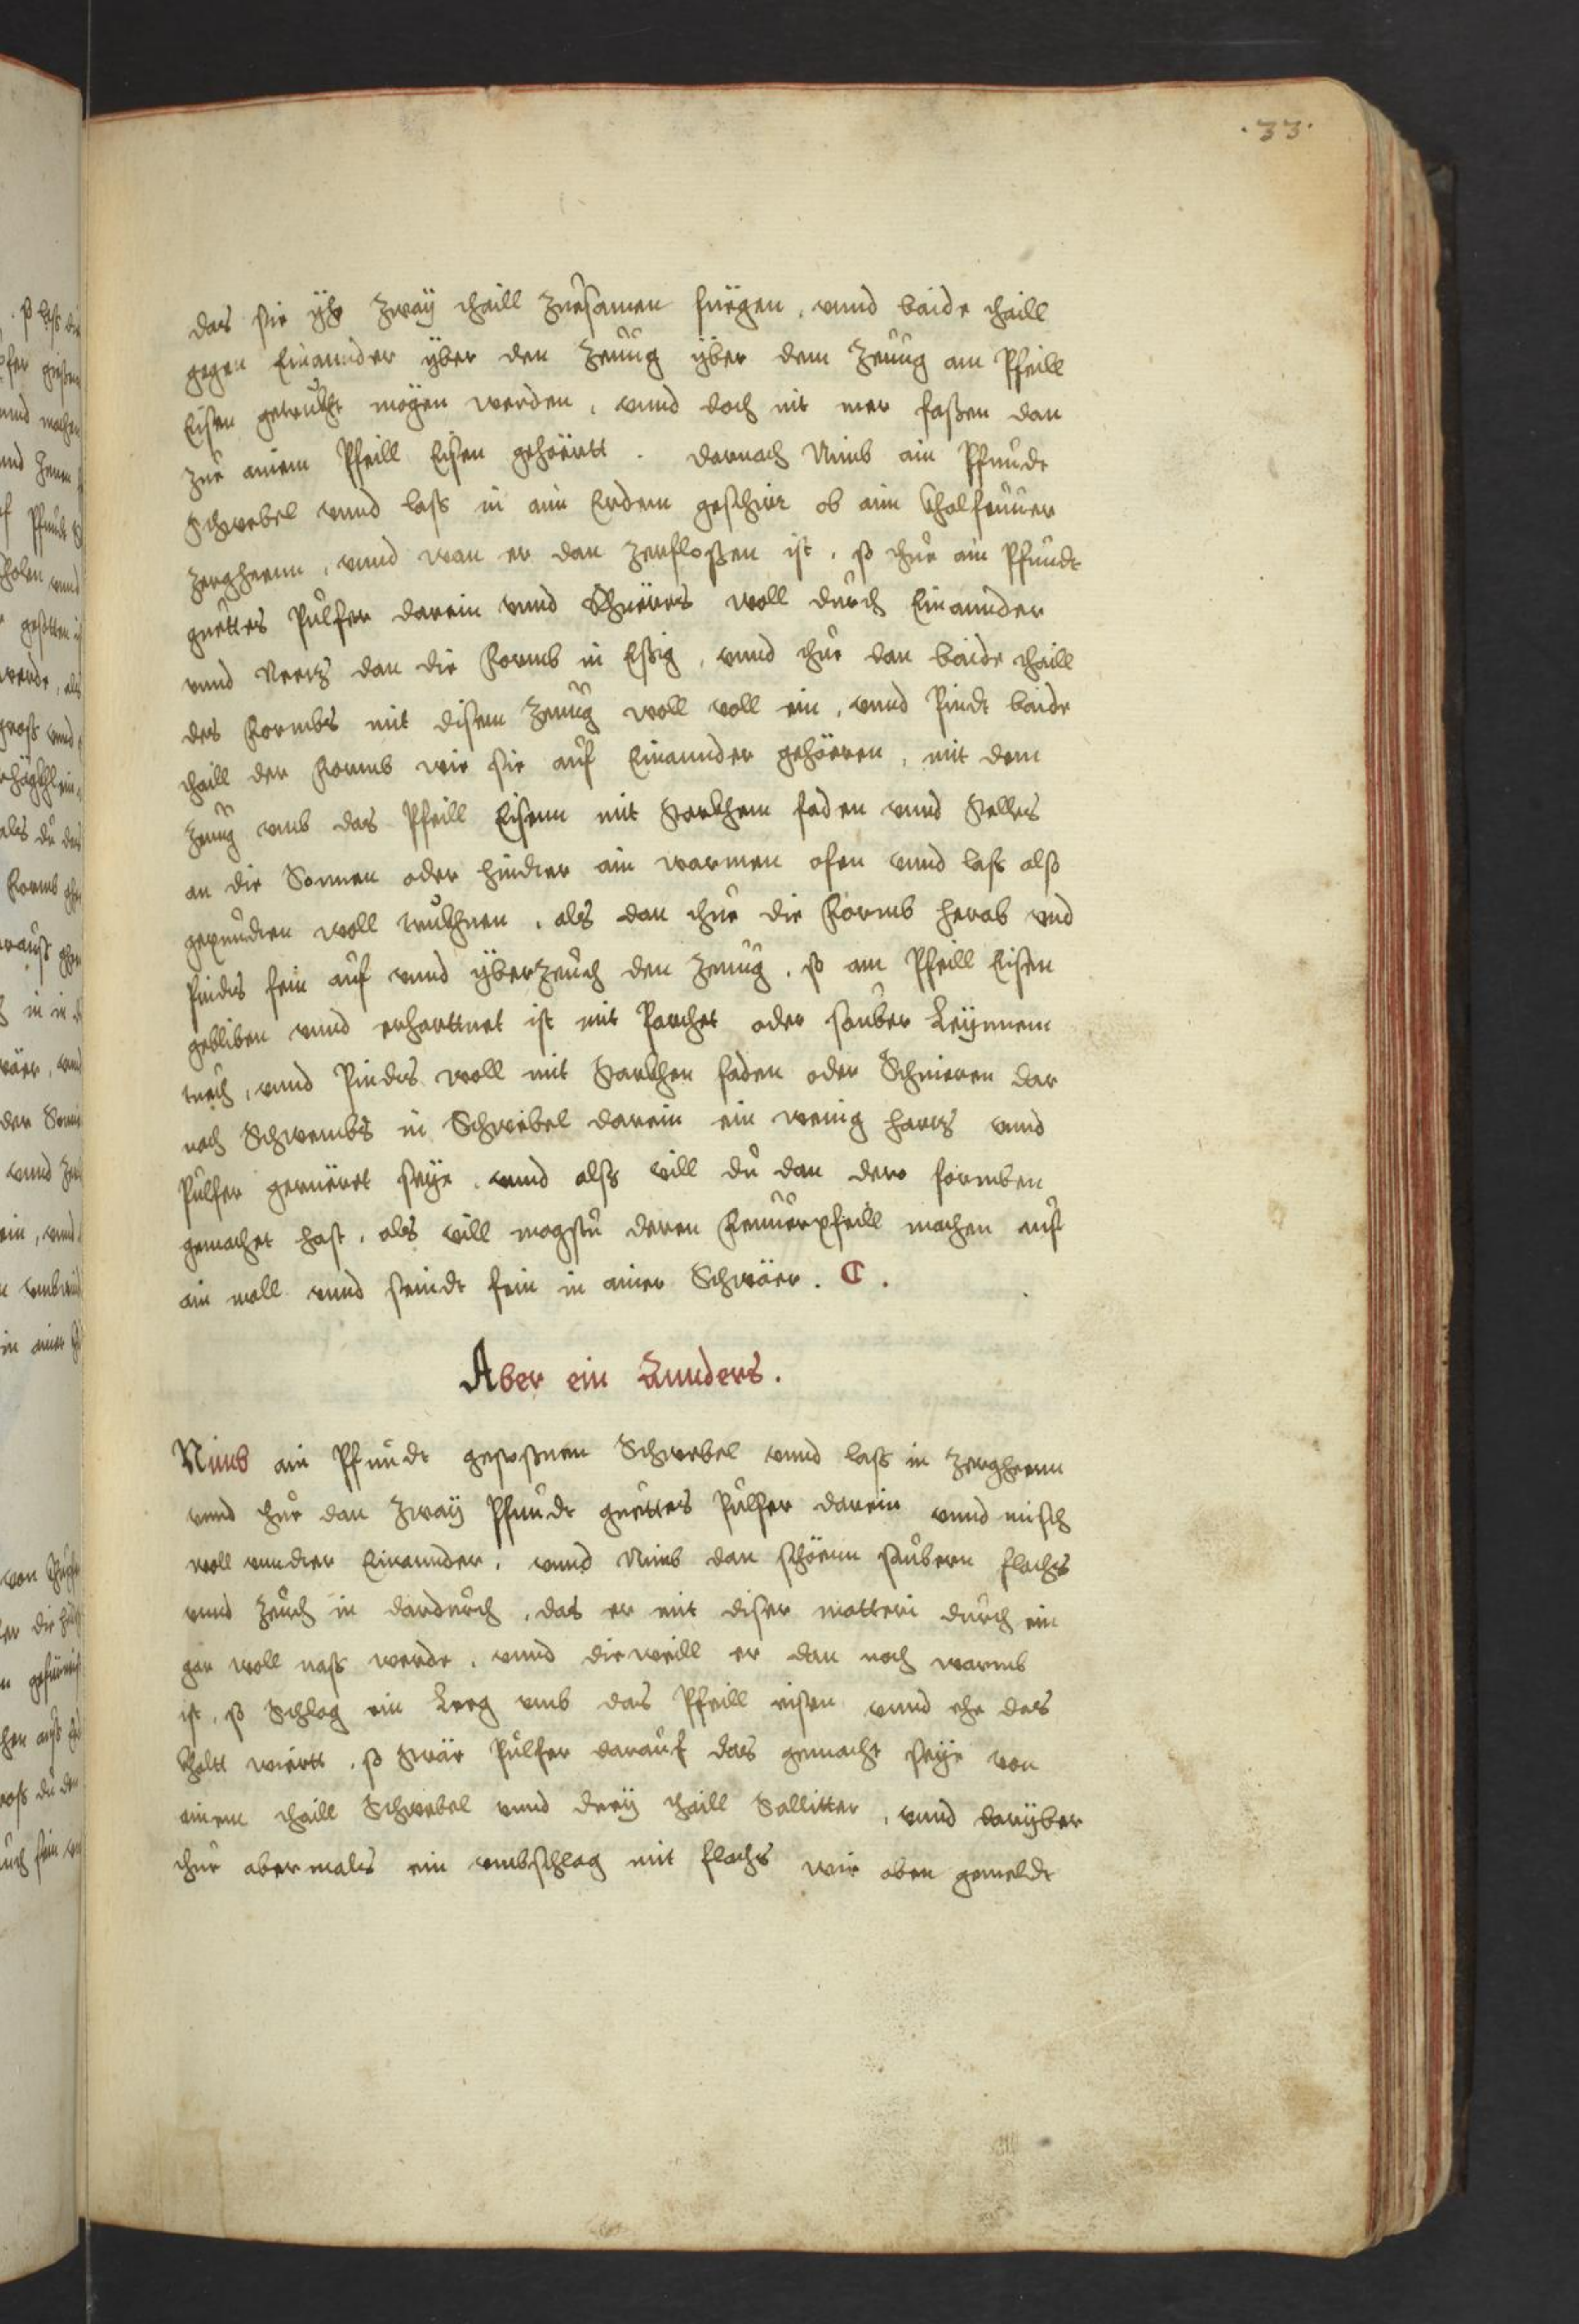 .33.
das sie yhr zway thaill zuesamen fuegen, vnnd baide thaill
gegen Einannder yber den Zeuug yber dem Zeuug am Pfeill
Eisen getrukht mogen werden, vnnd doch nit mer faßen dan
zue ainem Pfeill Eisen gehöertt. darnach Nimb ain Pfundt
Schwebel vnnd lass in ain Erdem geschir ob aim Kholfeuuer
zergheenn, vnnd wan er dan zerfloßen ist, so thue ain Pfundt
guettes Pulfer darein vnnd Rhueers woll durch Einannder
vnnd Neetz dan die Formb in Eßig, vnnd thue dan baide thaill
des Formbs mit disem Zeuug woll voll ein, vnnd Pindt baide
thaill der Formb wie sie auf Einannder gehöeren, mit dem
Zeuug vmb das Pfeill Eisenn mit starkhem faden vnnd stelles
an die Sonnen oder hindter ain warmen ofen vnnd lass also
gepundten woll trukhnen, als dan thue die Formb herab vnd
findts fein auf vnnd yberzeuch den Zeuug, so am Pfeill Eisen
gebliben vnnd erharttnet ist mit Parchet oder sauber Leynnem
tuech, vnnd Pindts woll mit starkhen faden oder Schnieren dar
nach Schwembs in Schwebel darein ein wenig hartz vnnd
Pulfer geruëret seye, vnnd alss vill du dan dero formben
gemachet hast, als vill magstu deren Feuuerpfeill machen auf
ain mall vnnd seindt fein in ainer Schwäer. C.
Aber ein Annders.
Nimb ain Pfundt gestoßnen Schwebel vnnd lass in zergheenn
vnnd thue dan zway Pfundt guettes Pulfer darein vnnd misch
woll vnndter Einannder, vnnd Nimb dan schöenn saubern flachs
vnnd zeuch in dardurch, das er mit diser matteri durch ein
gar woll nass werde, vnnd dieweill er dan noch warmb
ist, so Schlag ein Leeg vmb das Pfeill eisen vnnd ehe das
khaltt wiertt, so strär Pulfer darauf das gemacht seye von
einem thaill Schwebel vnnd drey thaill Sallitter, vnnd daryber
thue abermals ein vmbschlag mit flachs wie oben gemeldt